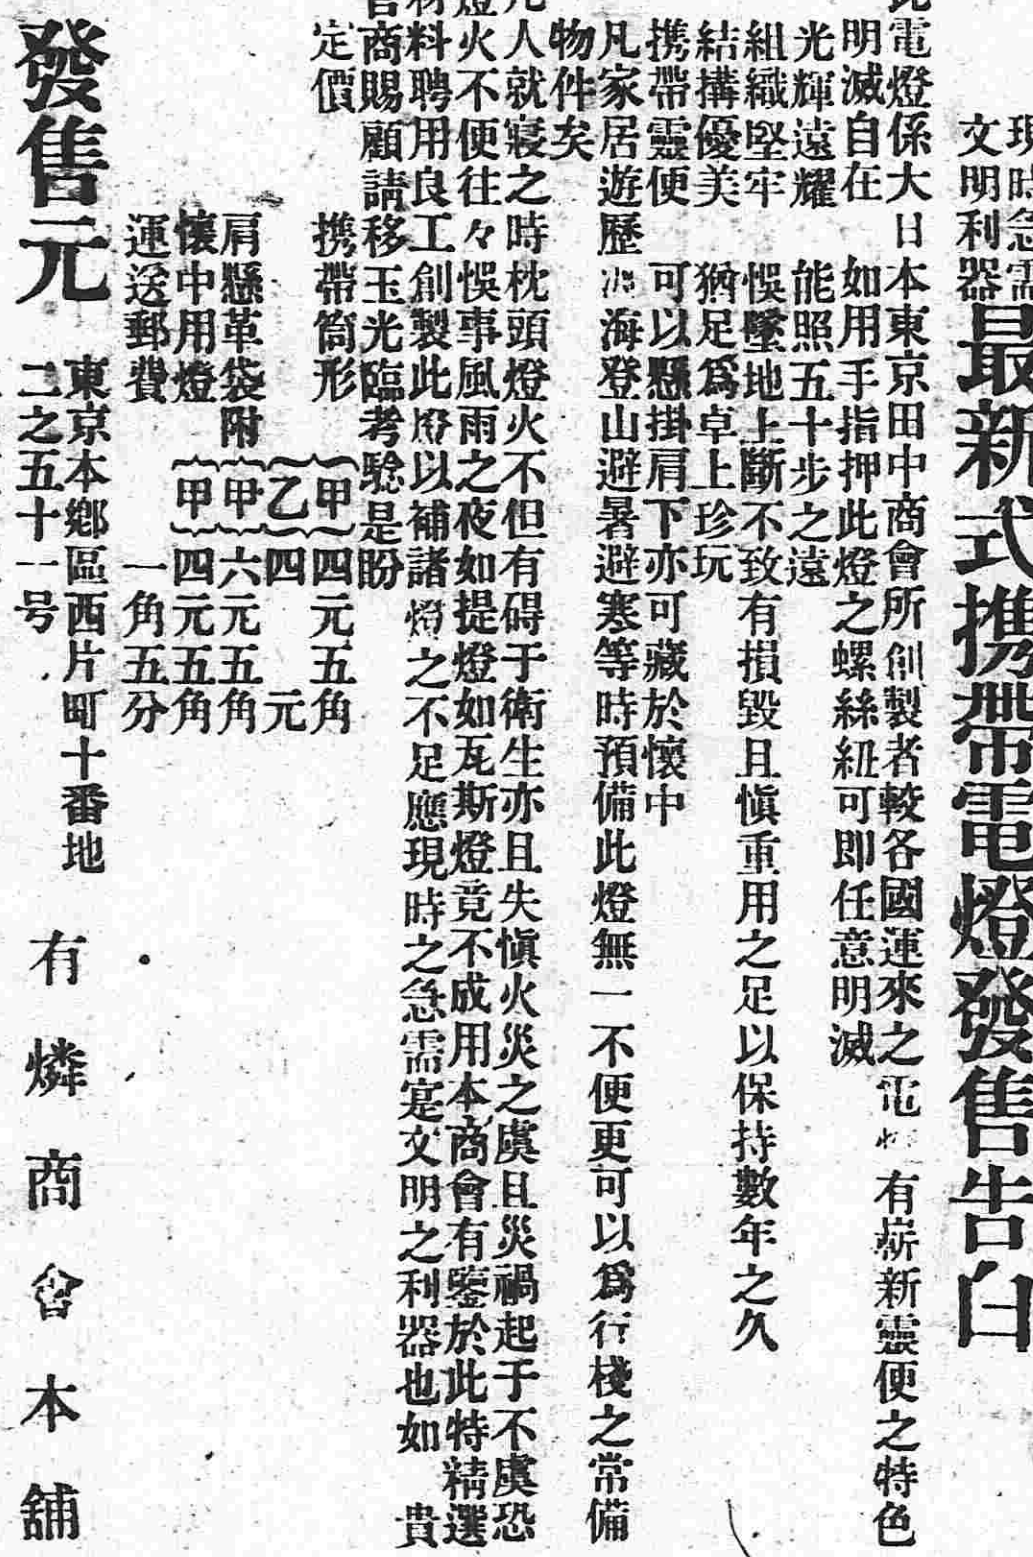 現時急需
文明利器
最新式携帶電燈發售告白
此電燈係大日本東京田中商會所創製者較各國運來之電 有嶄新靈便之特色
明滅自在 如用手指押此燈之螺絲紐可即任意明滅
光輝遠耀 能照五十步之遠
組織堅牢 悞墜地上斷不致有損毀且愼重用之足以保持數年之久
結搆優美 猶足爲卓上珍玩
携帶靈便 可以懸掛肩下亦可藏於懷中
凡家居遊歷 海登山避暑避寒等時預備此燈無一不便更可以爲行棧之常備
物件矣
凡人就寢之時枕頭燈火不但有碍于衛生亦且失愼火災之虞且災禍起于不虞恐
燈火不便往々悞事風雨之夜如提燈如瓦斯燈竟不成用本商會有鑒於此特精選
材料聘用良工創製此燈以補諸燈之不足應現時之急需寔文明之利器也如 貴
官商賜顧請移玉光臨考騐是盼
定價
携帶筒形 (甲) 四元五角
(乙) 四 元
肩懸革袋附 (甲) 六元五角
懷中用燈 (甲) 四元五角
運送郵費 一角五分
發售元
東京本鄉區西片町十番地
二之五十一号
有燐商會本舖